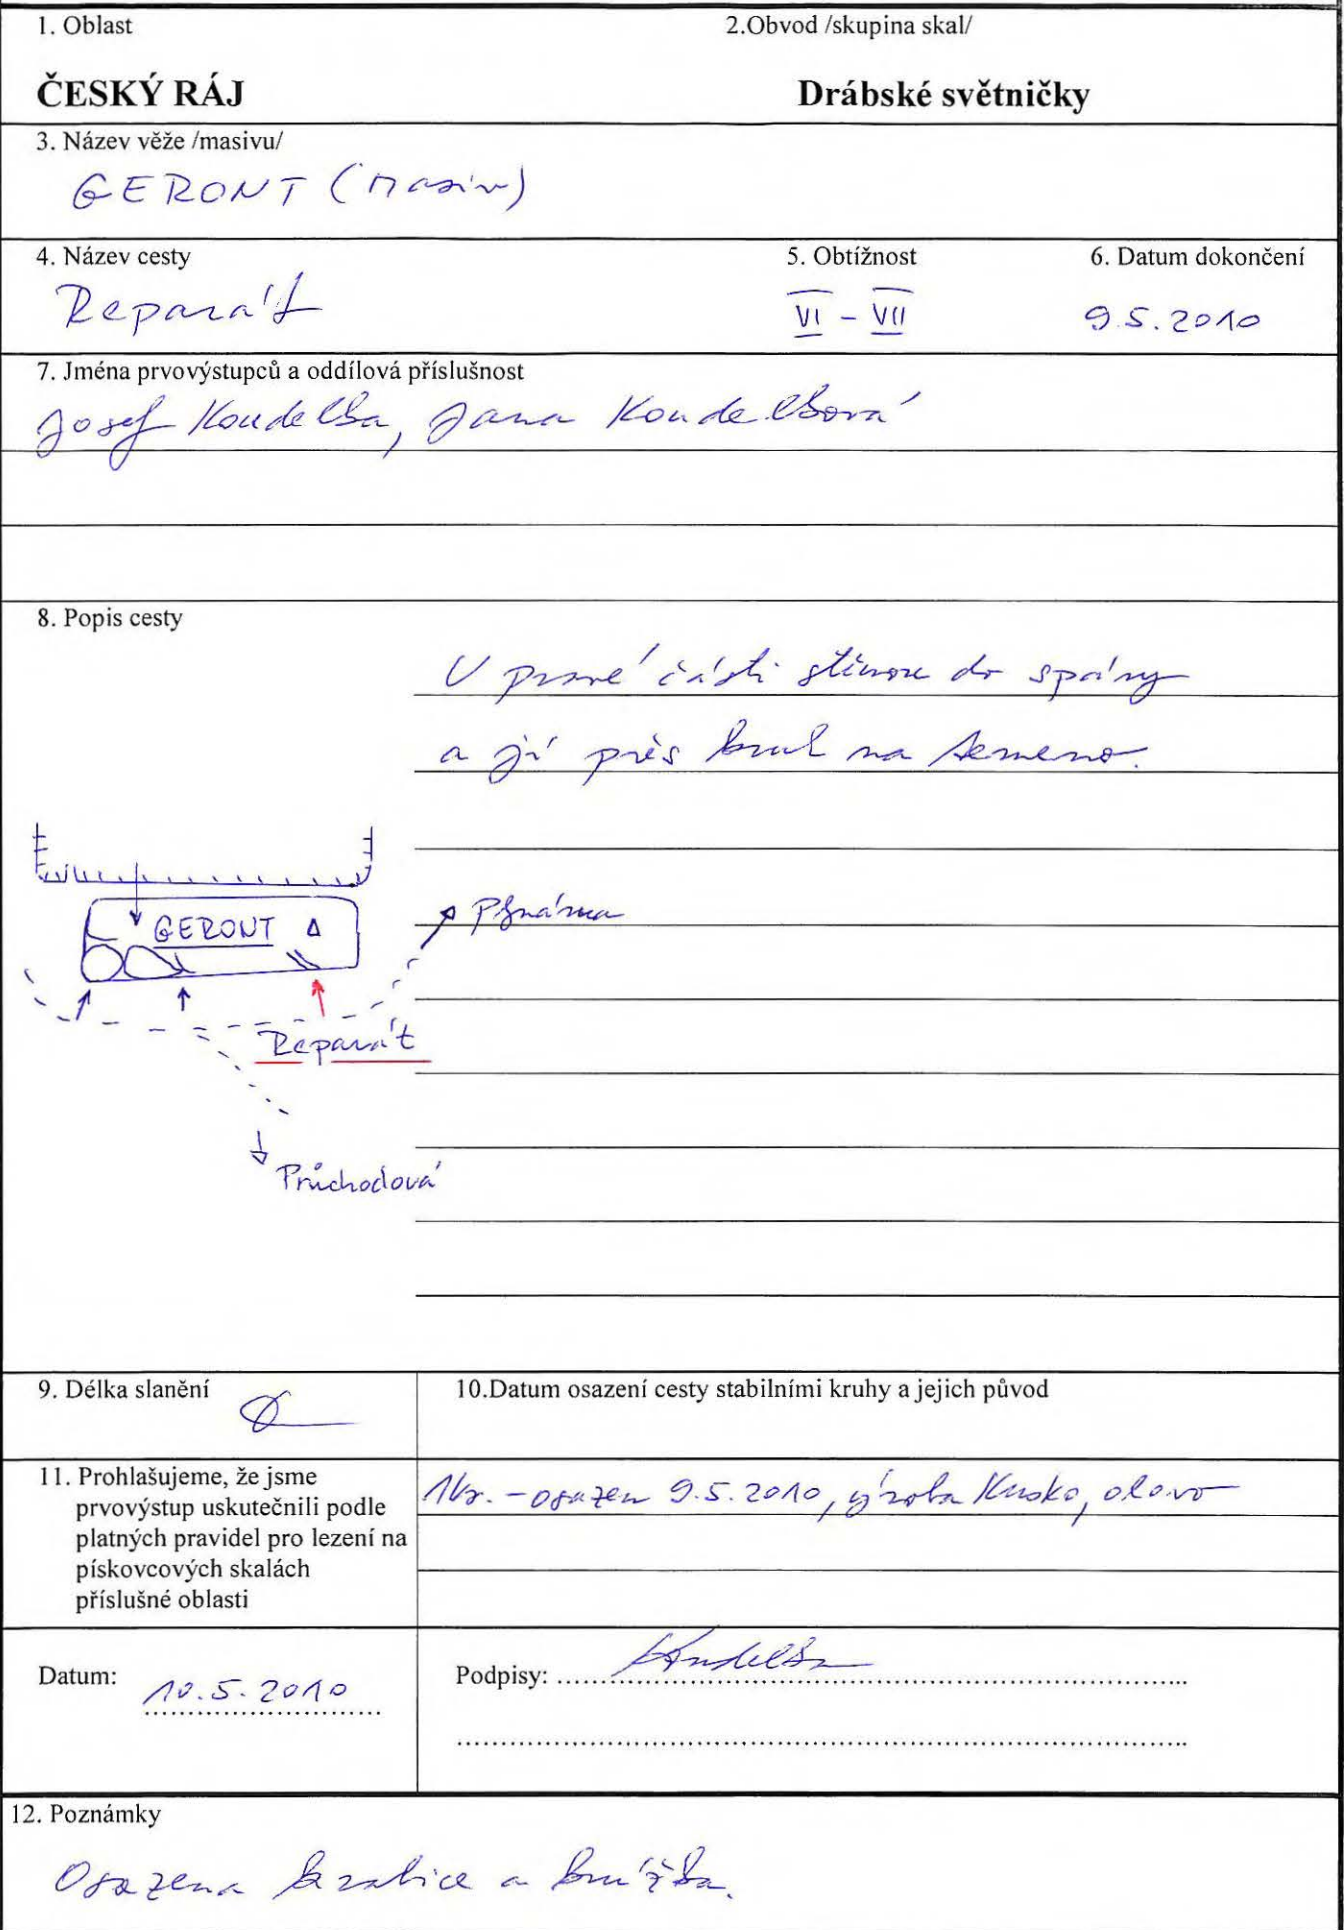 1. Oblast
2.Obvod /skupina skal/
ČESKÝ RÁJ
Drábské světničky
3. Název věže /masivu/
GERONT (masiv)
4. Název cesty
5. Obtížnost
6. Datum dokončení
Reparát
VI - VII
9.5.2010
7. Jména prvovýstupců a oddílová příslušnost
Josef Koudelka, Jana Koudelková
8. Popis cesty
V pravé části stěnou do spáry
a jí přes kruh na temeno.
GERONT
Reparát
Průchodová
9. Délka slanění
10.Datum osazení cesty stabilními kruhy a jejich původ
11. Prohlašujeme, že jsme
prvovýstup uskutečnili podle
platných pravidel pro lezení na
pískovcových skalách
příslušné oblasti
1kr. - osazen 9.5.2010, výroba Kusko, olovo
Datum: 10.5.2010
Podpisy: Koudelka
12. Poznámky
Osazena krabice a knížka.